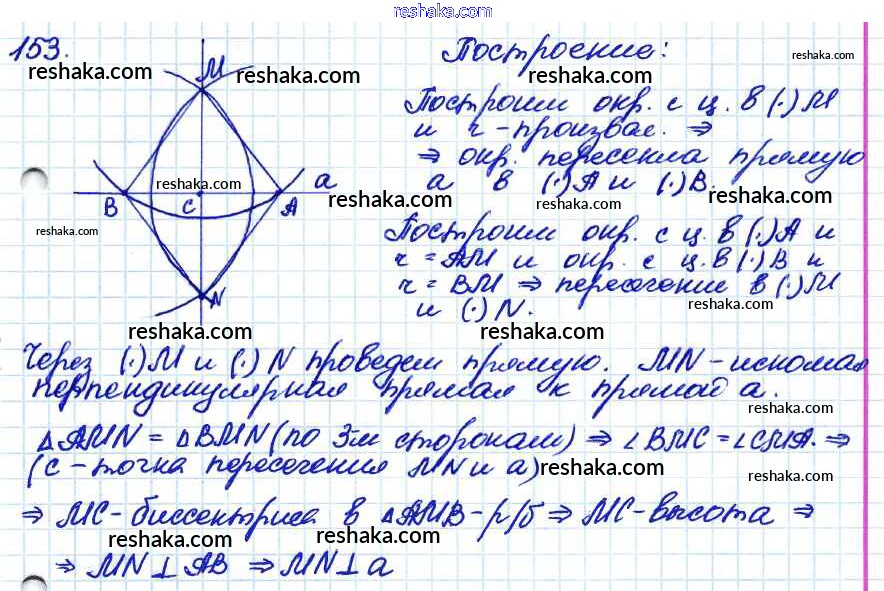 reshaka.com
153.
reshaka.com
M
reshaka.com
Построение:
reshaka.com
reshaka.com
Построим окр. с ц. в (·) M
и r-произвол. ⇒
⇒ окр. пересекла прямую
a в (·) A и (·) B.
reshaka.com
a
B
C
A
reshaka.com
reshaka.com
reshaka.com
reshaka.com
Построим окр. с ц. в (·) A и
r = AM и окр. с ц. в (·) B и
r = BM ⇒ пересечение в (·) M
и (·) N.
reshaka.com
N
reshaka.com
reshaka.com
Через (·) M и (·) N проведем прямую. MN - искомая
перпендикулярная прямая к прямой a.
reshaka.com
△AMN = △BMN (по 3-м сторонам) ⇒ ∠BMC = ∠CMA. ⇒
(C - точка пересечения MN и a)
reshaka.com
reshaka.com
⇒ MC - биссектриса в △AMB - р/б ⇒ MC - высота ⇒
reshaka.com
reshaka.com
reshaka.com
⇒ MN ⊥ AB ⇒ MN ⊥ a